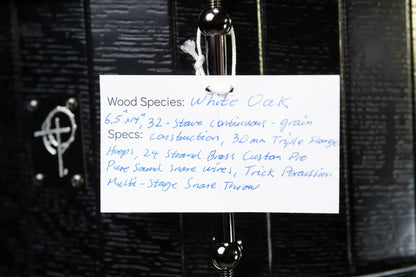 Wood Species: White Oak
6.5"x14", 32-Stave continuous-grain
Specs: construction, 30mm Triple Flange
Hoops, 24 Strand Brass Custom Pro
Pure Sound Snare wires, Trick Percussion
Multi-Stage Snare Throw